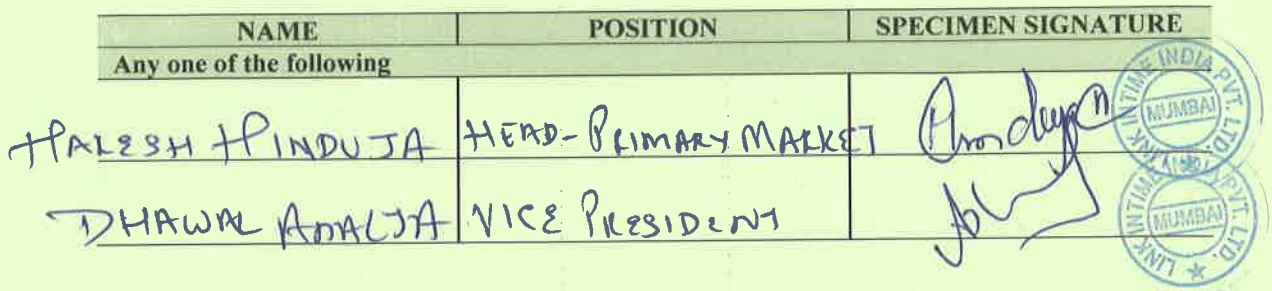 NAME POSITION SPECIMEN SIGNATURE
Any one of the following
HARESH HINDUJA HEAD-PRIMARY MARKET
DHAWAL ADALJA VICE PRESIDENT
LINK INTIME INDIA PVT. LTD.
MUMBAI
LINK INTIME INDIA PVT. LTD. ★
MUMBAI